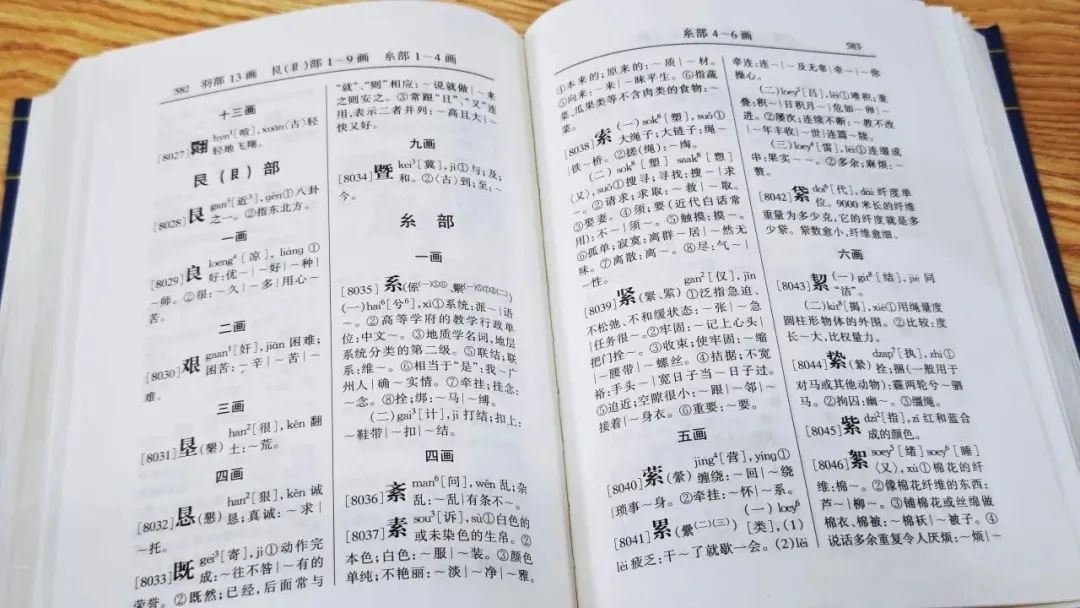 582 羽部 13 画 艮(⻖)部 1～9 画 糸部 1～4 画
十三画
[8027]翾 hyn¹[喧], xuān〈古〉轻
轻地飞翔。
艮(⻖)部
[8028]艮 gan³[近³], gèn①八卦
之一。②指东北方。
一画
[8029]良 loeng⁴[凉], liáng①
好:优～|～好|～种|
～师。②很:～久|～多|用心～
苦。
二画
[8030]艰 gaan¹[奸], jiān 困难;
困苦:～辛|～苦|～
难。
三画
[8031]垦(墾) han²[很], kěn 翻
土:～荒。
四画
[8032]恳(懇) han²[狠], kěn 诚
恳;真诚:～求|
～托。
[8033]既 gei³[寄], jì①动作完
成:～往不咎|～有的
荣誉。②既然;已经,后面常与
“就”、“则”相应:～说就做|～来
之则安之。③常跟“且”、“又”连
用,表示二者并列:～高且大|～
快又好。
九画
[8034]暨 kei³[冀], jì①与;及;
和。②〈古〉到;至:～
今。
糸部
一画
[8035]系(係㊀①⑤⑥、繫㊀⑤⑦⑧㊁)
(一)hai⁶[兮⁶], xì①系统:派～|语
～。②高等学府的教学行政单
位:中文～。③地质学名词,地层
系统分类的第二级。⑤联结;联
系:维～。⑥相当于“是”:我～广
州人|确～实情。⑦牵挂;挂念:
～念。⑧拴;绑:～马|～缚。
(二)gai³[计], jì 打结;扣上:
～鞋带|～扣|～结。
四画
[8036]紊 man⁶[问], wěn 乱;杂
乱:～乱|有条不～。
[8037]素 sou³[诉], sù①白色的
或未染色的生帛。②
本色;白色:～服|～装。③颜色
单纯;不艳丽:～淡|～净|～雅。
糸部 4～6 画 583
④本来的;原来的:～质|～材。
⑤向来:～来|～昧平生。⑥指蔬
菜、瓜果类等不含肉类的食物:～
菜。
[8038]索 (一)sok³[塑], suǒ①
大绳子;大链子:绳～
|铁～桥。②搓(绳):～绹。
(二)sok³[塑] saak³[愬]
(又), suǒ①搜寻;寻找:搜～|求
～。②请求;求取:～救|～取。
③娶妻。④须;要(近代白话常
用):不～|须～。⑤触摸:摸～。
⑥孤单;寂寞:离群～居|～然无
味。⑦离散:离～。⑧尽:气～|
～性。
[8039]紧(緊、䋮) gan²[仅], jǐn
①泛指急迫、
不松弛、不和缓状态:～张|～急
|任务很～。②牢固:～记上心头|
把门拴～。③收束;使牢固:～缩
|～腰带|～螺丝。④拮据;不宽
裕:手头～|宽日子当～日子过。
⑤迫近;空隙很小:～跟|～邻|～
接着|～身衣。⑥重要:～要。
五画
[8040]萦(縈) jing⁴[营], yíng①
缠绕:～回|～绕
|琐事～身。②牵挂:～怀|～系。
[8041]累(纍㊁㊂) (一)loey⁶
[类],(1)
lèi 疲乏:干～了就歇一会。(2)lěi
牵连:连～|～及无辜|牵～|～你
操心。
(二)loey⁵[吕], lěi①堆积;重
叠:积～|日积月～|危如～卵|～
进。②屡次;连续不断:～教不改
|～年丰收|～世|连篇～牍。
(三)loey⁴[雷], léi①连缀成
串:果实～～。②多余;麻烦:～
赘。
[8042]紧 doi⁶[代], dài 纤度单
位。9000 米长的纤维
重量为多少克,它的纤度就是多
少紧。紧数愈小,纤维愈细。
六画
[8043]絜 (一)git³[结], jié 同
“洁”。
(二)kit³[揭], xié①用绳量度
圆柱形物体的外围。②比较;度
长～大,比权量力。
[8044]絷(縶) dzap⁷[执], zhí①
拴;捆(一般用于
对马或其他动物):霾两轮兮～驷
马。②拘囚:幽～。③缰绳。
[8045]紫 dzi²[指], zǐ 红和蓝合
成的颜色。
[8046]絮 soey⁵[绪] soey⁶[睡]
(又), xù①棉花的纤
维:棉～。②像棉花纤维的东西:
芦～|柳～。③铺棉花或丝绵做
棉衣、棉被:～棉袄|～被子。④
说话多余重复令人厌烦:～烦|～